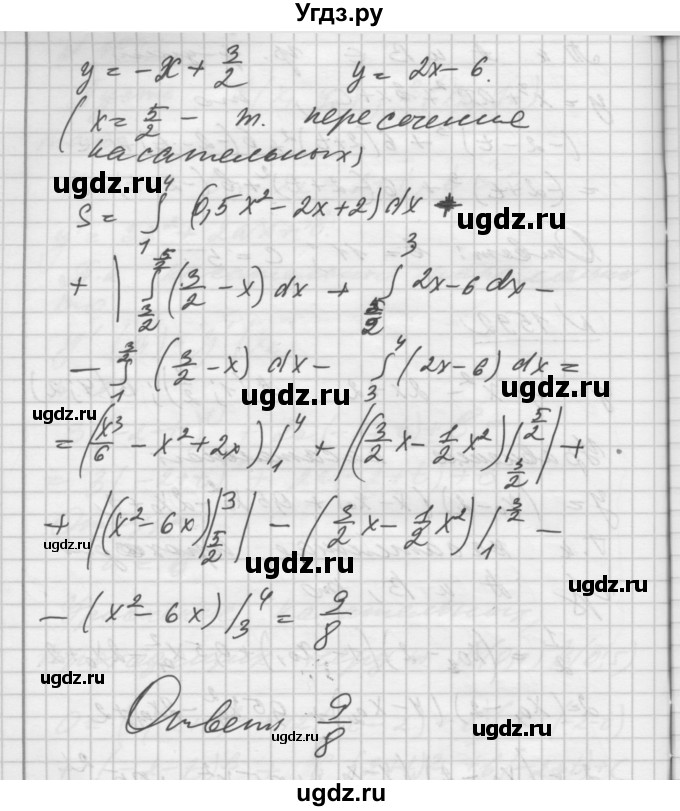 Угдз.ру
y = -x + 3/2   y = 2x - 6.
(x = 5/2 - т. пересечение
касательных)
ugdz.ru ugdz.ru
S = ∫₁⁴ (0,5x² - 2x + 2) dx +
ugdz.ru
+ | ∫_{3/2}^{5/2} (3/2 - x) dx + ∫_{5/2}^{3} 2x - 6 dx -
- ∫_{1}^{3/2} (3/2 - x) dx - ∫_{3}^{4} (2x - 6) dx =
ugdz.ru ugdz.ru ugdz.ru
= (x³/6 - x² + 2x) |₁⁴ + |(3/2 x - 1/2 x²) |_{3/2}^{5/2}| +
+ |(x² - 6x) |_{5/2}^{3}| - (3/2 x - 1/2 x²) |_{1}^{3/2} -
ugdz.ru ugdz.ru ugdz.ru
- (x² - 6x) |₃⁴ = 9/8
ugdz.ru ugdz.ru ugdz.ru
Ответ 9/8
ugdz.ru ugdz.ru
ugdz.ru